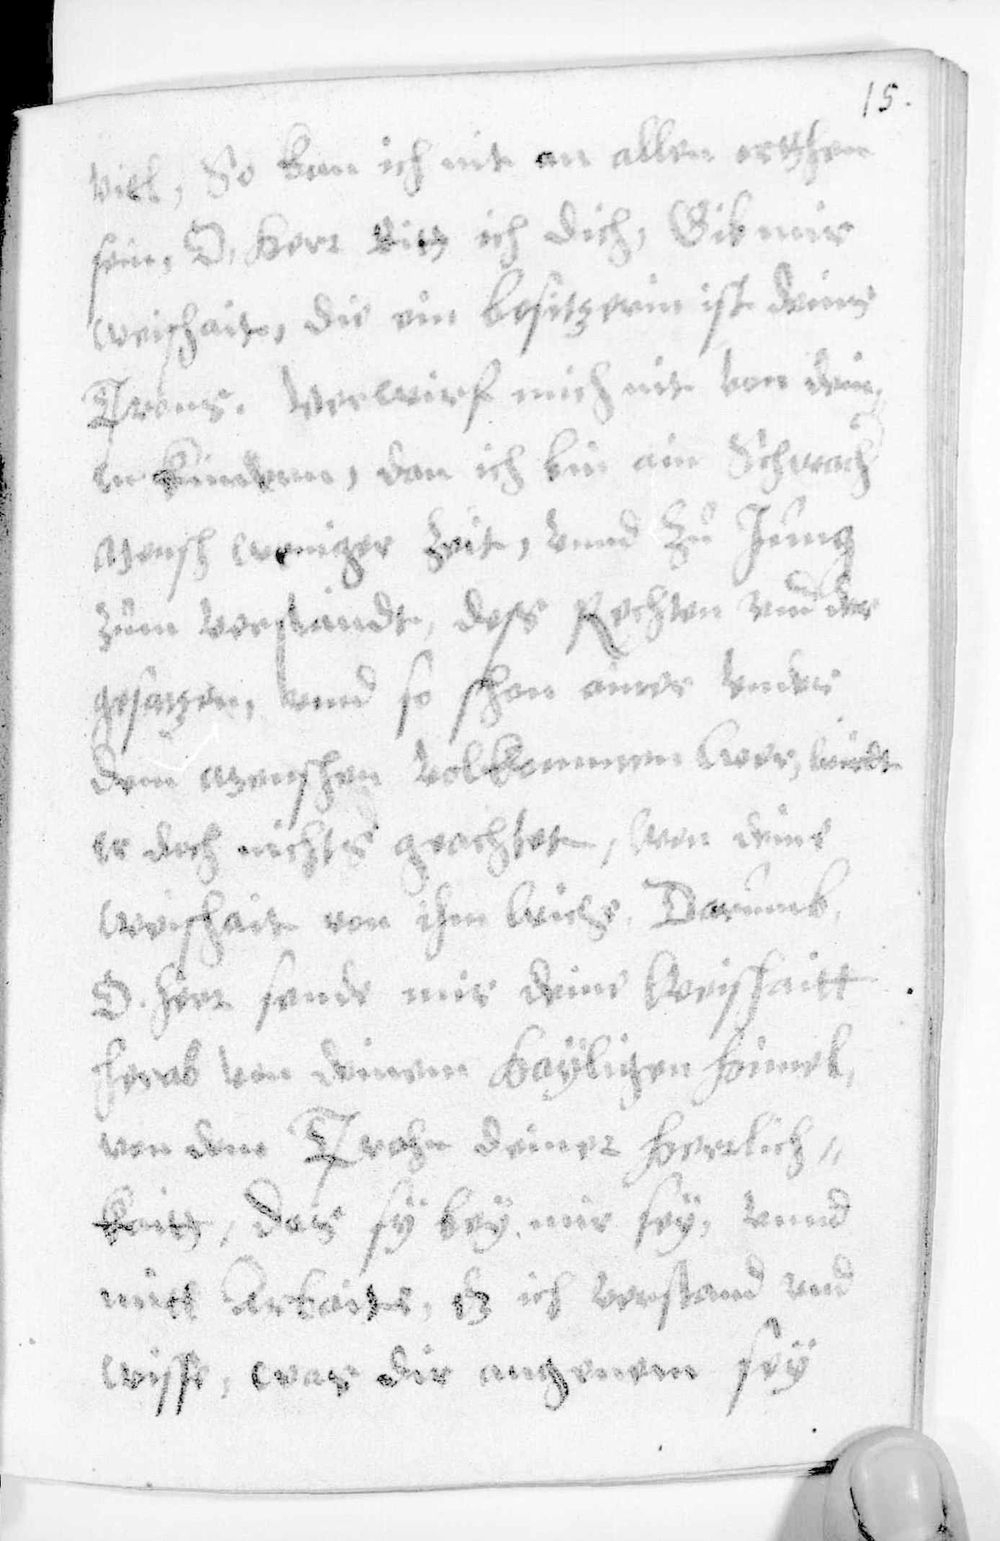 15.
viel, So kan ich nit an allen orthen
sein, O, Herr Bitt ich dich, Gib mir
weishait, die ein besitzerin ist deines
Trons. Verwirf mich nit von dein„
en Kindern, dan ich bin ain Schwach
Mensch weniger Zeit, vnnd Zu Jung
zum verstandt, dess Rechten vnd der
gesatzen, vnnd so schon einer vnder
dem Menschen volkommen wer, wirdt
er doch nichts geachtet, wen deine
weishait von ihm wiche. Darumb,
O. Herr sende mir deine weishaitt
herab von deinem Hayligen himel,
von dem Trohn deiner herrlich„
Keitt, das sÿ beÿ mir seÿ, vnnd
mitt Arbaite, dz ich verstand vnd
wisse, was dir angenem seÿ